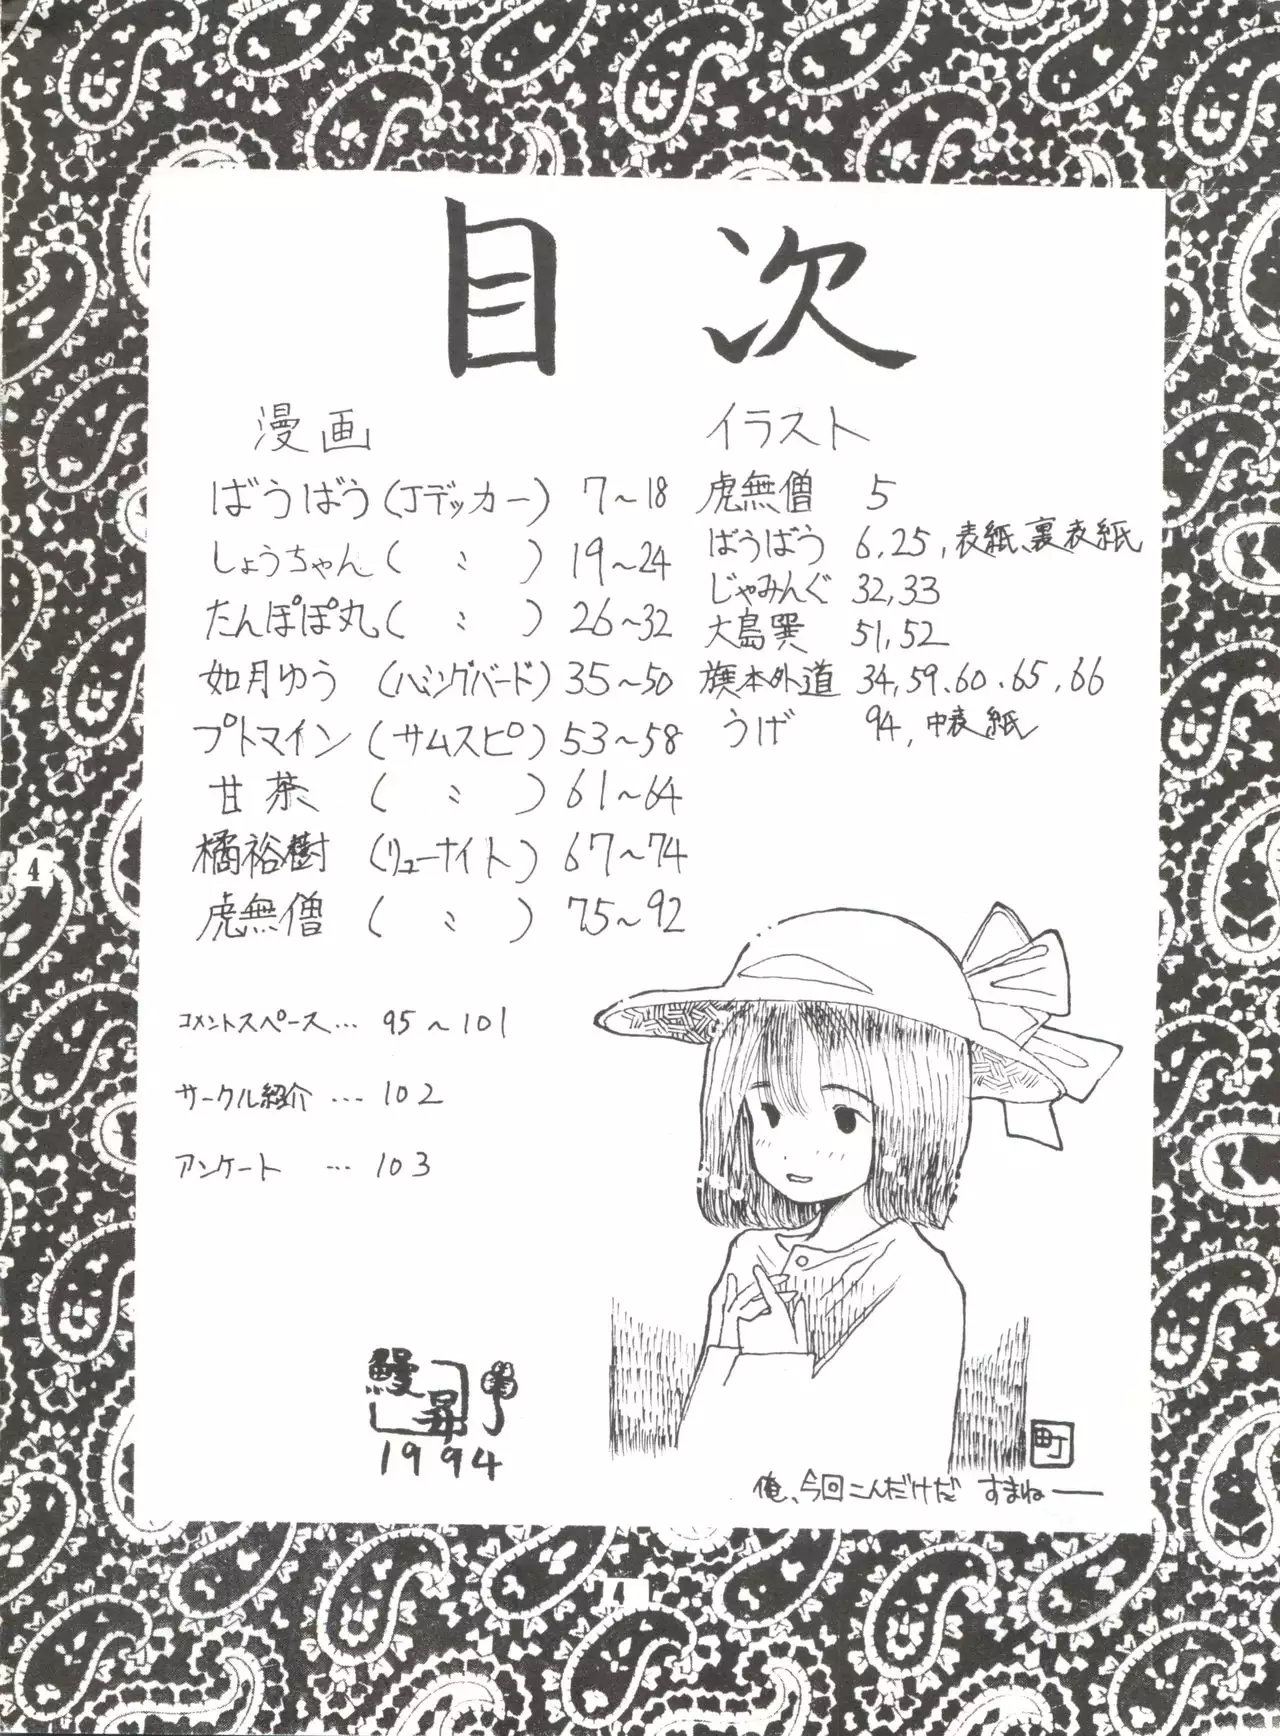 目次
漫画
ばうばう (Jデッカー) 7〜18
しょうちゃん ( 〃 ) 19〜24
たんぽぽ丸 ( 〃 ) 26〜32
如月ゆう (ハミングバード) 35〜50
プトマイン (サムスピ) 53〜58
甘茶 ( 〃 ) 61〜64
橘裕樹 (リューナイト) 67〜74
虎無僧 ( 〃 ) 75〜92
イラスト
虎無僧 5
ばうばう 6,25,表紙、裏表紙
じゃみんぐ 32,33
大島巽 51,52
旗本外道 34,59、60、65、66
うげ 94,中表紙
コメントスペース… 95〜101
サークル紹介 … 102
アンケート … 103
鰻
昇
1994
町
俺、今回こんだけだ すまねー
4
4